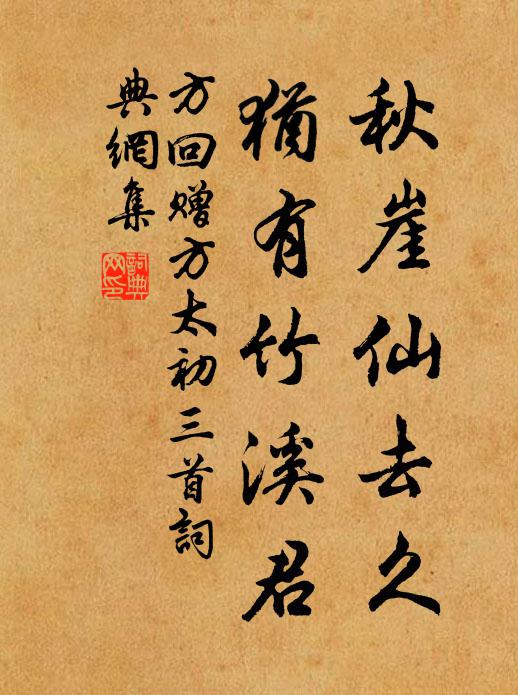 秋崖仙去久
猶有竹溪君
方回贈方太初三首詞
典網集
詞典
网印